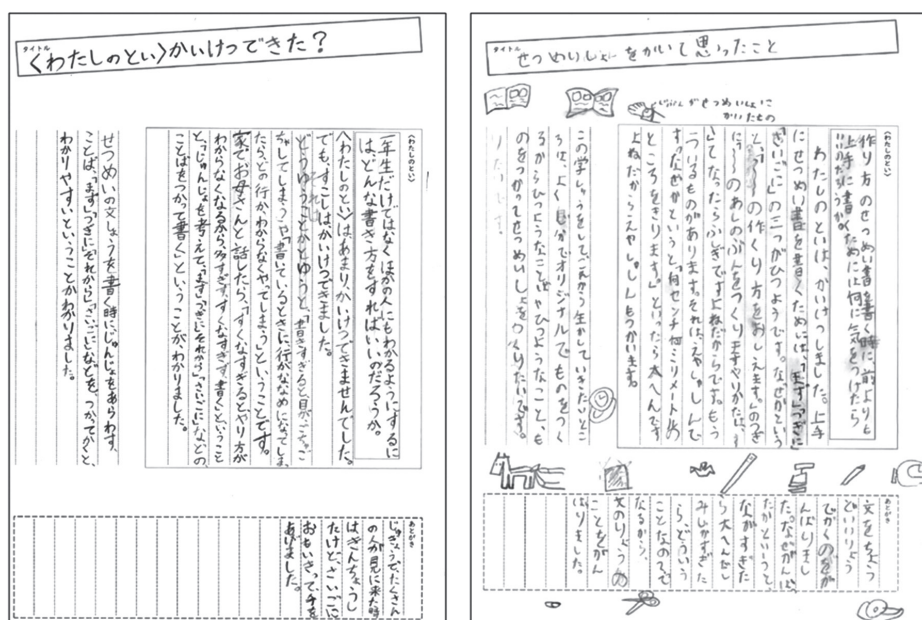 タイトル
〈わたしのとい〉かいけつできた？
〈わたしのとい〉
一年生だけではなくほかの人にもわかるようにするに
はどんな書き方をすればいいのだろうか。
〈わたしのとい〉はあまりかいけつできませんでした。
でも、すこしはかいけつできました。
どうゆうことかとゆうと、「書きすぎると目がごちゃご
ちゃしてしまう」や「書いているときに、行がななめになってしまっ
たら、どの行かわからなくやってしまう」ということです。
家でお母さんと話したら、「すくなすぎるとやり方が
わからなくなるから、多すぎず、すくなすぎず、書く」ということ
と、「じゅんじょを考えて、「まず」「つぎに」「それから」「さいごに」などの
ことばをつかって書く」ということがわかりました。
せつめいの文しょうを書く時に、じゅんじょをあらわす、
ことば、「まず」「つぎに」「それから」「さいごに」などを、つかってかくと、
わかりやすいということがわかりました。
あとがき
じゅぎょうで、たくさん
の人が見に来た時
はきんちょうし
たけど、さいごに
おもいきって、手を
あげました。
タイトル
せつめいしょをかいて思ったこと
じぶんがせつめいしょに
かいたもの
〈わたしのとい〉
作り方のせつめい書を書く時に前よりも
上手に書くためには何に気をつけたら
いいのだろうか。
わたしのといは、かいけつしました。上手
にせつめい書を書くためには、「まず」「つぎに」
「さいごに」の三つがひつようです。なぜかという
と、「〜の作くり方をおしえます。」のつぎ
この学しゅうをしてこれから生かしていきたいとこ
ろは、よく自分でオリジナルでものをつく
るからひつようなことばやひつようなこと、も
のをつかってせつめいしょをつくりたいです。
あとがき
文をちょう
どいいりょう
でかくのをが
んばりまし
た。なぜがんば
ったかというと
ながすぎた
ら大へんだし
みじかすぎた
らどういう
ことなのって
なるから、
文のりょうの
ことをがん
ばりました。